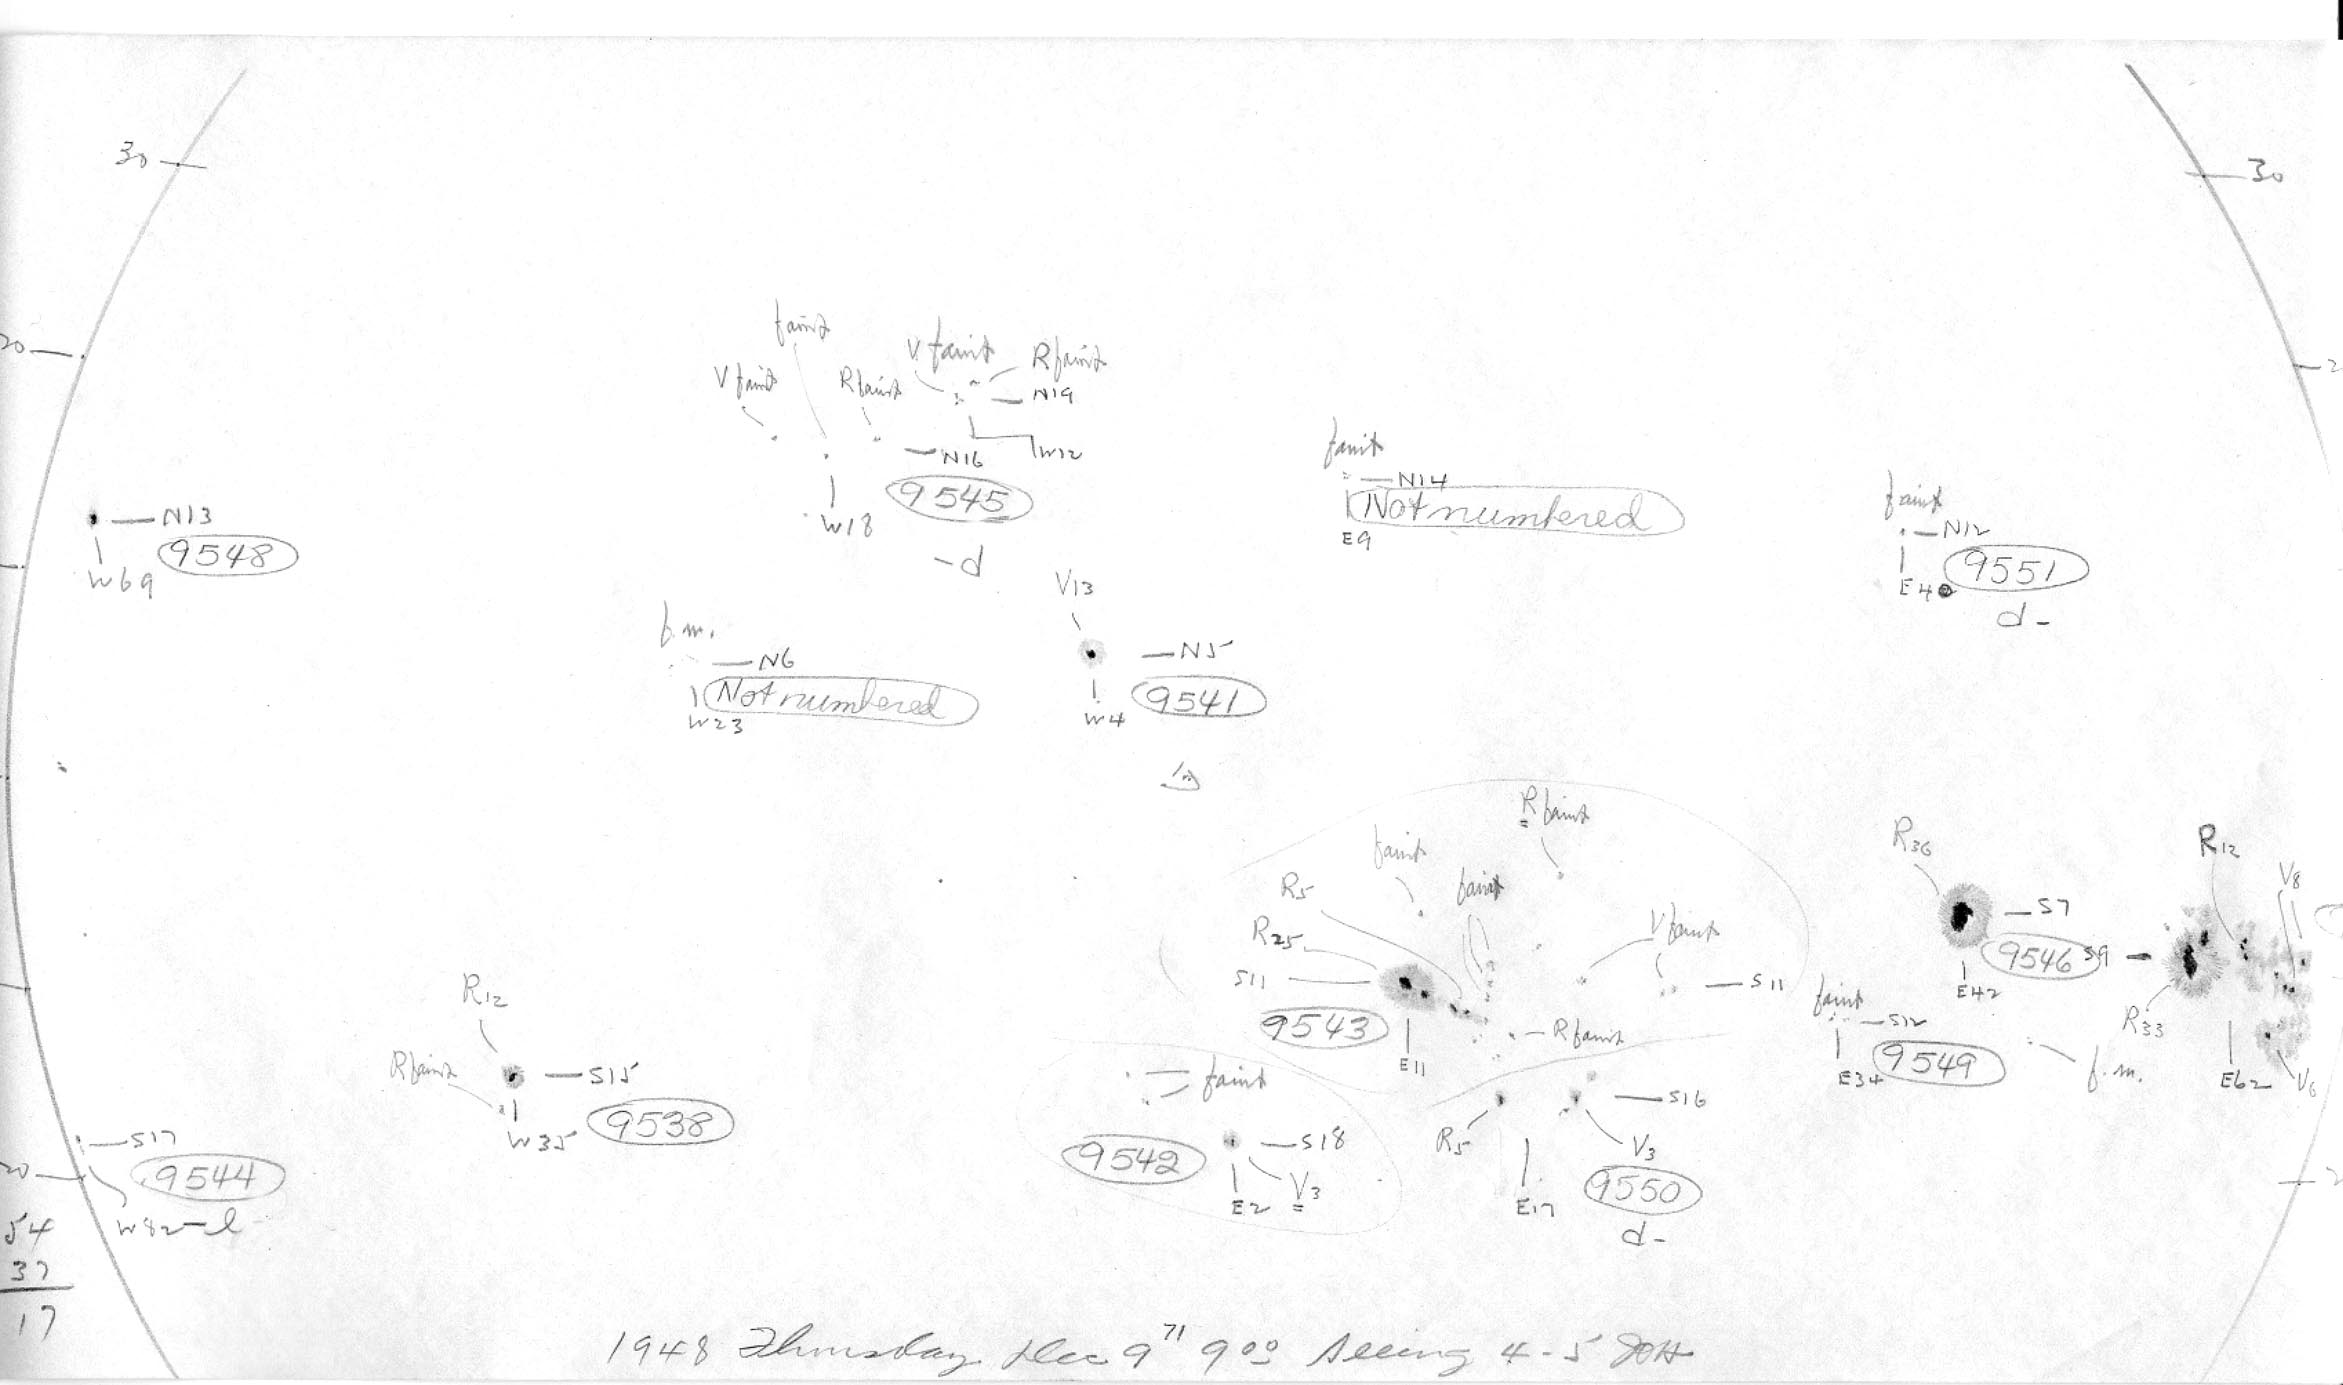 30
30
20
2
faint
V faint
R faint
V faint
R faint
N19
N16
W12
9545
W18
-d
faint
N14
Not numbered
E9
faint
N12
9551
E40
d-
N13
9548
W69
f.m.
N6
Not numbered
W23
V13
N5
9541
W4
R faint
faint
faint
R5
R25
S11
9543
E11
V faint
S11
R faint
R36
S7
9546
E42
S9
R12
V8
R33
E62
V6
faint
S12
9549
E34
f.m.
R12
R faint
S15
9538
W35
faint
9542
S18
V3
E2
R5
S16
V3
E17
9550
d-
S17
20
9544
W82-l
2
54
37
17
1948 Thursday Dec 9 71 9 00 Seeing 4-5